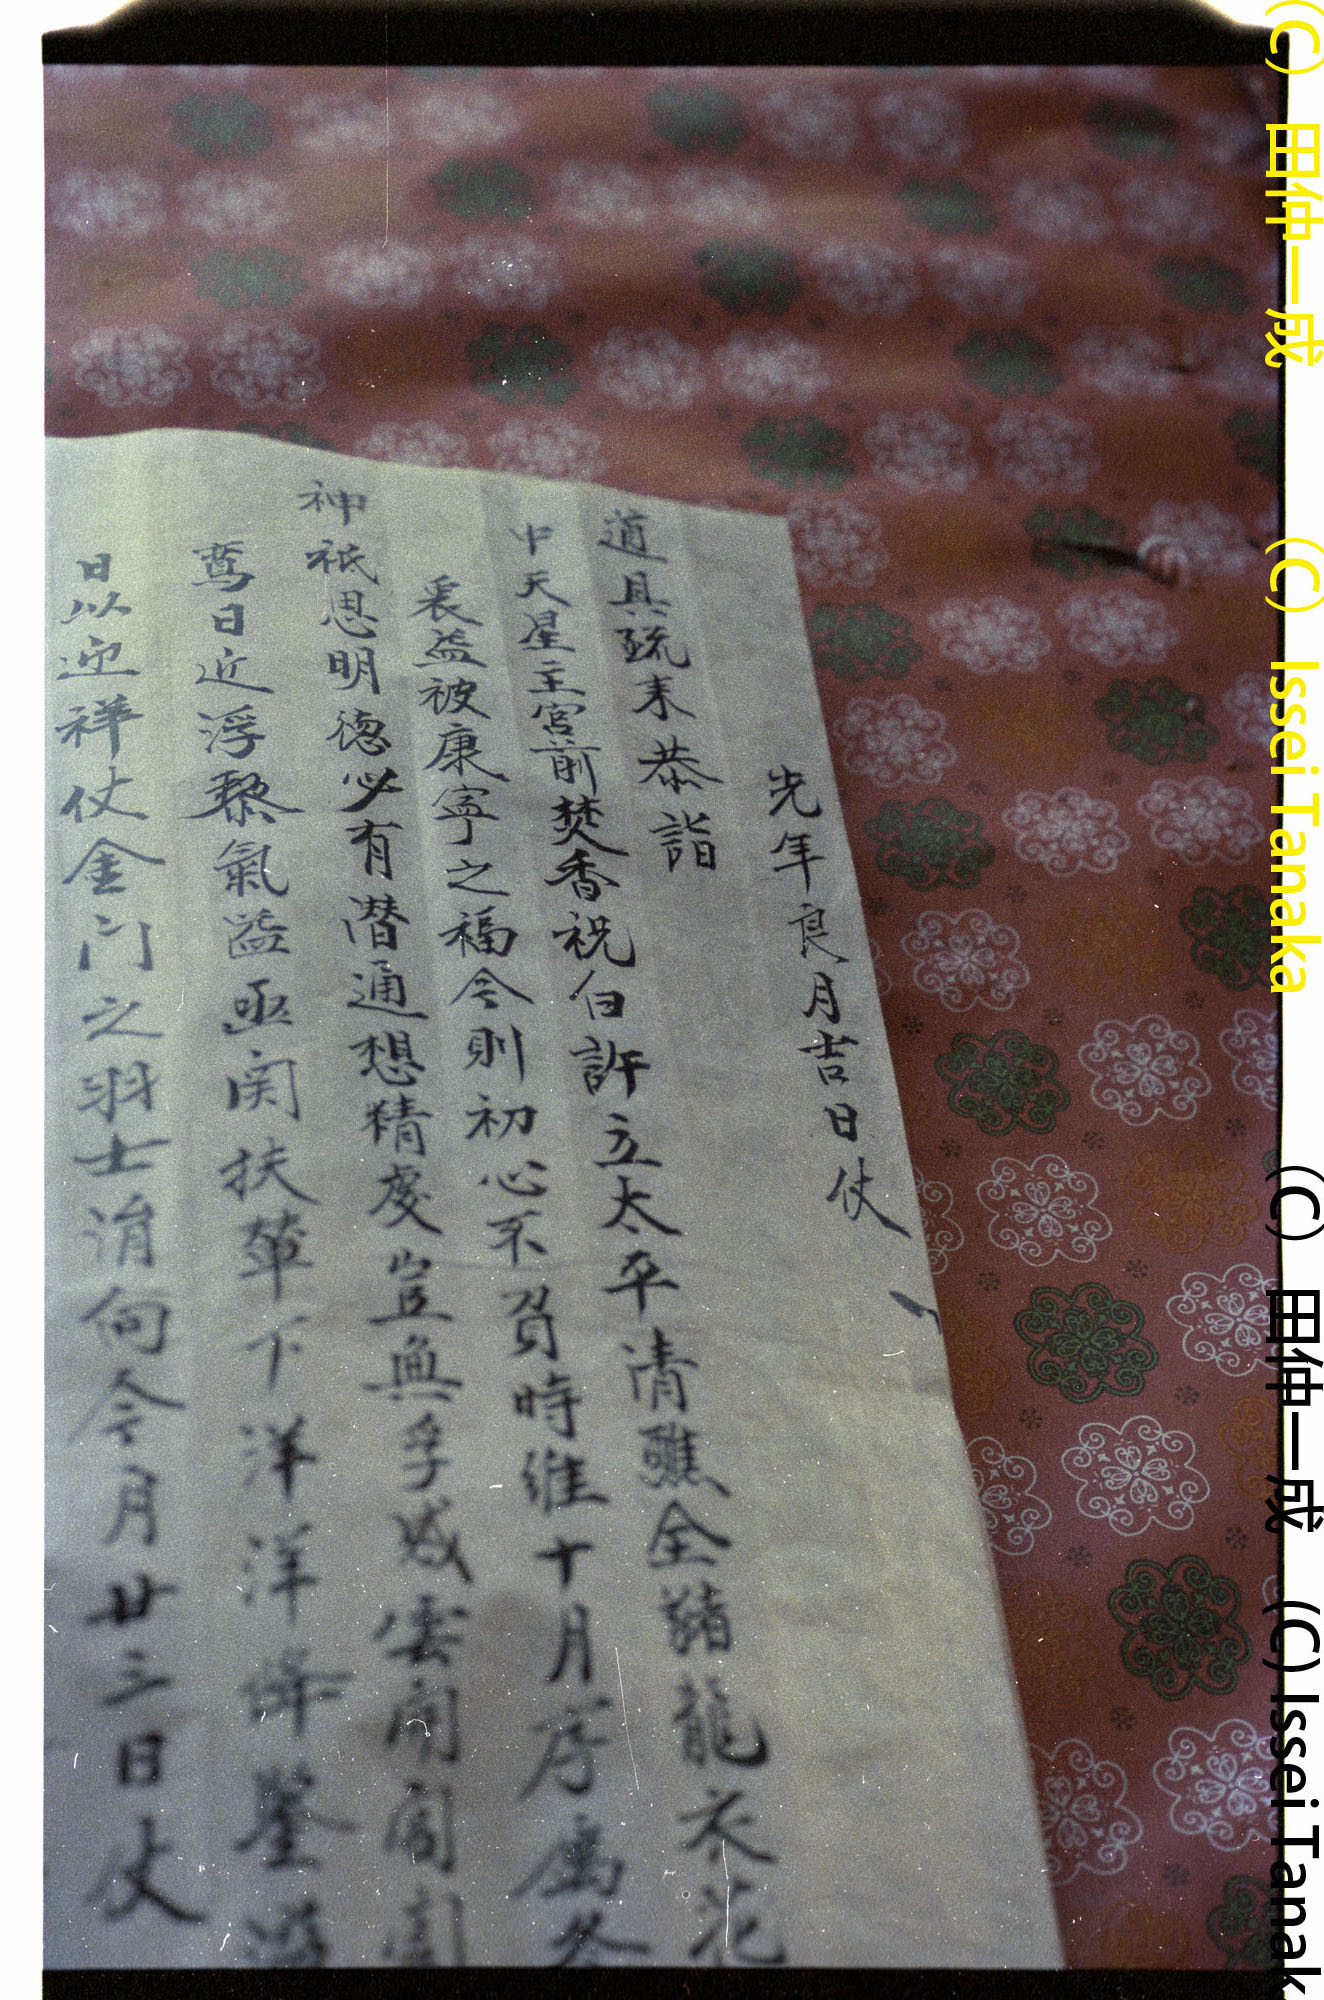 光年良月吉日仗
道具疏末恭詣
中天星主宮前焚香祝白許立太平清醮全豬龍衣花
裘益被康寧之福今則初心不負時維十月序屬冬
神祇恩明德必有潛通想精虔豈無孚感雲開閶
鸞日近浮藜氣溢亟関扶輦下洋洋降鑒
日以迎祥仗金門之羽士涓向今月廿三日仗
(C) 田仲一成 (C) Issei Tanaka
(C) 田仲一成 (C) Issei Tanak